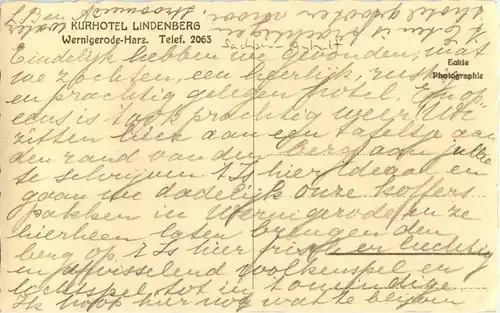 KURHOTEL LINDENBERG
Wernigerode-Harz. Telef. 2063
Echte
Photographie
Eindelijk hebben we gevonden, wat
we zochten, een heerlijk, rustig
en prachtig gelegen hotel. En op
eens is 't ook prachtig weer. We
zitten hier aan een tafeltje aan
den rand van den berg aan jullie
te schrijven. 't Is hier ideaal en
gaan we dadelijk onze koffers
pakken in Wernigerode en ze
hierheen laten brengen den
berg op. 't Is hier frisch en luchtig
en afwisselend wolkenspel en
lichtspel tot in 't oneindige
Ik hoop hier nog wat te blijven